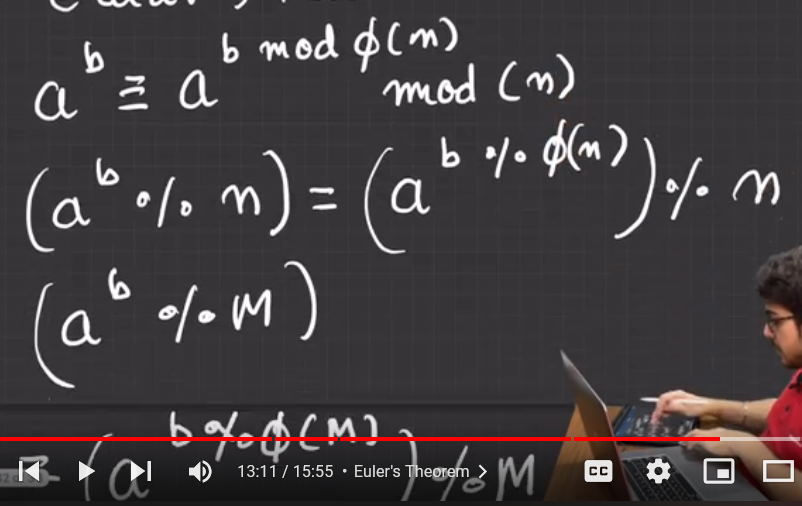 a^b ≡ a^(b mod ϕ(n)) mod (n)
(a^b % n) = (a^(b % ϕ(n))) % n
(a^b % M)
= (a^(b % ϕ(M))) % M
13:11 / 15:55 • Euler's Theorem
CC